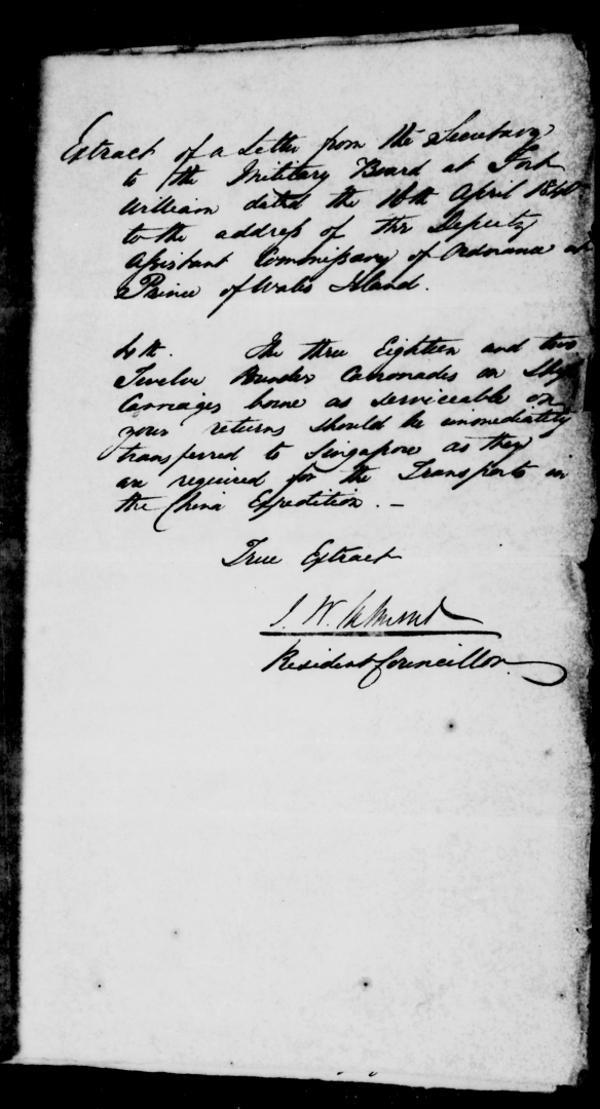 Extract of a Letter from the Secretary
to the Military Board at Fort
William dated the 16th April 1840
to the address of the Deputy
Assistant Commissary of Ordnance at
Prince of Wales Island.
4th. The three Eighteen and two
Twelve Pounder Carronades on Ship
Carriages borne as serviceable on
your returns should be immediately
transferred to Singapore as they
are required for the Transports in
the China Expedition. —
True Extract
J. W.
Resident Councillor.